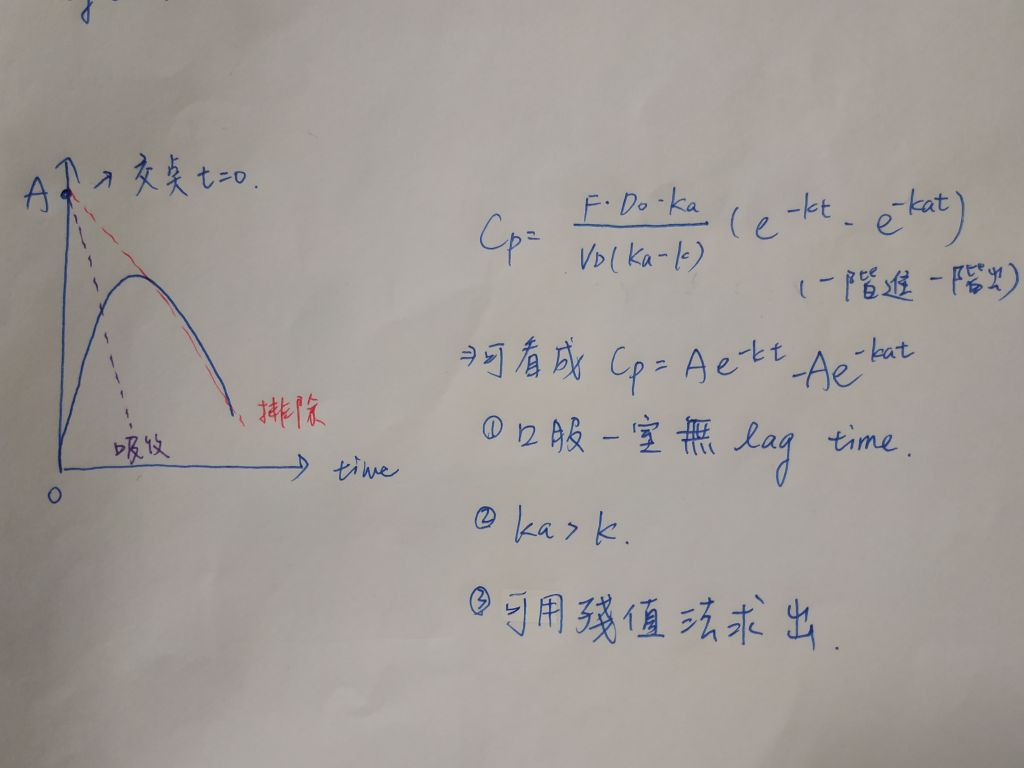 A → 交点 t=0.
排除
吸收
time
0
Cp = F·D0·ka / VD(ka-k) (e^-kt - e^-kat)
(一階進一階出)
⇒可看成 Cp = Ae^-kt - Ae^-kat
① 口服一室無 lag time.
② ka > k.
③ 可用殘值法求出.